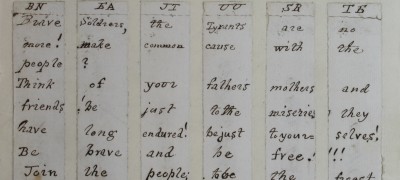 BN EA JT UU SR TE
Brave Soldiers, the Tyrents are no
more! make common cause with the
people ?
Think of your fathers mothers and
friends! be just to the miseries they
have long endured! be just to your= selves!
Be brave and be free. !!!
Join the people; to be the